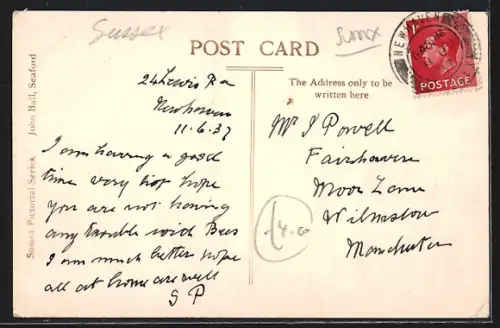 Sussex
Sussex
POST CARD
24 Lewis Rd
Newhaven
11.6.37
I am having a good
time very hot hope
you are not having
any trouble with Bees
I am much better hope
all at home are well
S P
The Address only to be
written here
Mr J Powell
Fairhaven
Moor Lane
Wilmslow
Manchester
NEWHAVEN
POSTAGE
Sussex Pictorial Series. John Ball, Seaford